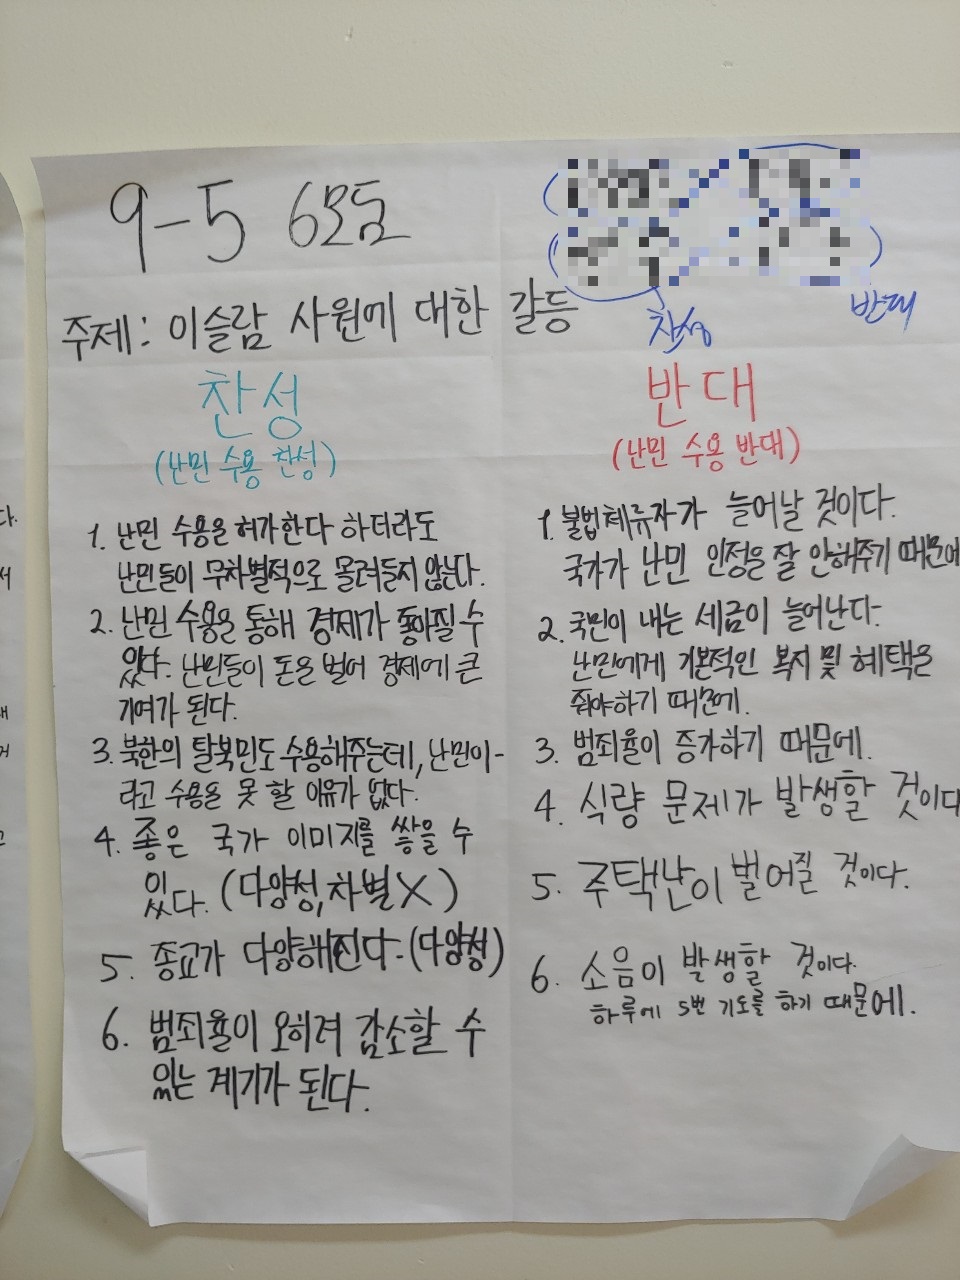 9-5 6모둠
찬성
반대
주제: 이슬람 사원에 대한 갈등
찬성
(난민 수용 찬성)
1. 난민 수용을 허가한다 하더라도
난민들이 무차별적으로 몰려들지 않는다.
2. 난민 수용을 통해 경제가 좋아질 수
있다. 난민들이 돈을 벌어 경제에 큰
기여가 된다.
3. 북한의 탈북민도 수용해주는데, 난민이-
라고 수용을 못 할 이유가 없다.
4. 좋은 국가 이미지를 쌓을 수
있다. (다양성, 차별X)
5. 종교가 다양해진다. (다양성)
6. 범죄율이 오히려 감소할 수
있는 계기가 된다.
반대
(난민 수용 반대)
1. 불법체류자가 늘어날 것이다.
국가가 난민 인정을 잘 안해주기 때문에
2. 국민이 내는 세금이 늘어난다.
난민에게 기본적인 복지 및 혜택을
줘야하기 때문에.
3. 범죄율이 증가하기 때문에.
4. 식량 문제가 발생할 것이다
5. 주택난이 벌어질 것이다.
6. 소음이 발생할 것이다.
하루에 5번 기도를 하기 때문에.